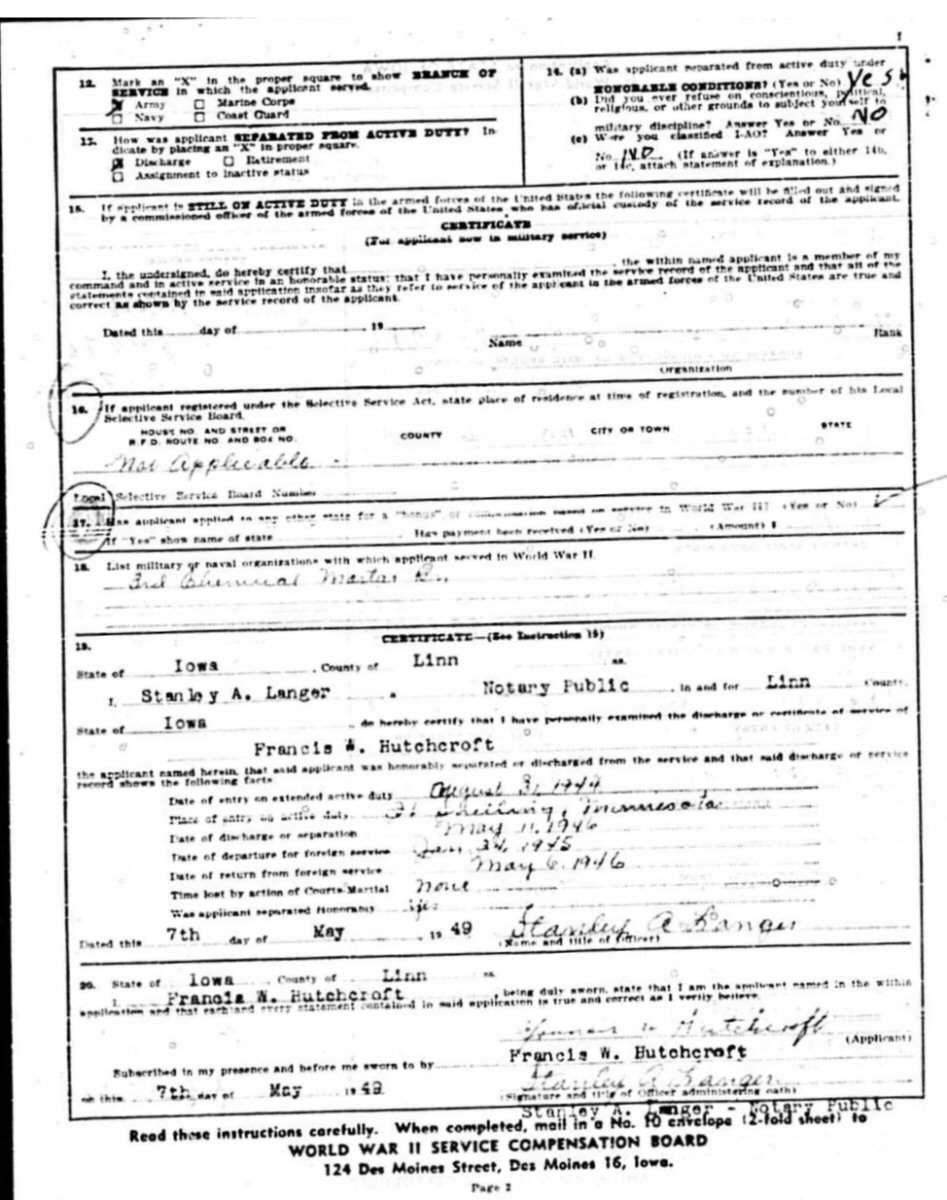 1
12. Mark an "X" in the proper square to show BRANCH OF
SERVICE in which the applicant served.
X Army □ Marine Corps
□ Navy □ Coast Guard
13. How was applicant SEPARATED FROM ACTIVE DUTY? In-
dicate by placing an "X" in proper square.
X Discharge □ Retirement
□ Assignment to inactive status
14. (a) Was applicant separated from active duty under
HONORABLE CONDITIONS? (Yes or No) Yes
(b) Did you ever refuse on conscientious, political,
religious, or other grounds to subject yourself to
military discipline? Answer Yes or No NO
(c) Were you classified I-AO? Answer Yes or
No NO (If answer is "Yes" to either 14b,
or 14c, attach statement of explanation.)
15. If applicant is STILL ON ACTIVE DUTY in the armed forces of the United States the following certificate will be filled out and signed
by a commissioned officer of the armed forces of the United States who has official custody of the service record of the applicant.
CERTIFICATE
(For applicant now in military service)
I, the undersigned, do hereby certify that , the within named applicant is a member of my
command and in active service in an honorable status; that I have personally examined the service record of the applicant and that all of the
statements contained in said application insofar as they refer to service of the applicant in the armed forces of the United States are true and
correct as shown by the service record of the applicant.
Dated this day of , 19
Name Rank
Organization
16. If applicant registered under the Selective Service Act, state place of residence at time of registration, and the number of his Local
Selective Service Board.
HOUSE NO. AND STREET OR
R.F.D. ROUTE NO. AND BOX NO. COUNTY CITY OR TOWN STATE
Not Applicable
Local Selective Service Board Number
17. Has applicant applied to any other state for a "bonus" or compensation based on service in World War II? (Yes or No)
If "Yes" show name of state Has payment been received (Yes or No) (Amount) $
18. List military or naval organizations with which applicant served in World War II.
3rd Chemical Mortar
19. CERTIFICATE—(See Instruction 19)
State of Iowa , County of Linn ss.
I, Stanley A. Langer a Notary Public , in and for Linn County,
State of Iowa , do hereby certify that I have personally examined the discharge or certificate of service of
Francis W. Hutchcroft
the applicant named herein, that said applicant was honorably separated or discharged from the service and that said discharge or service
record shows the following facts:
Date of entry on extended active duty August 31, 1944
Place of entry on active duty Ft Snelling, Minnesota
Date of discharge or separation May 11, 1946
Date of departure for foreign service Jan 24, 1945
Date of return from foreign service May 6, 1946
Time lost by action of Courts-Martial None
Was applicant separated Honorably Yes
Dated this 7th day of May , 19 49 Stanley A Langer
(Name and title of Officer)
20. State of Iowa County of Linn ss.
I, Francis W. Hutchcroft , being duly sworn, state that I am the applicant named in the within
application and that each and every statement contained in said application is true and correct as I verily believe.
Francis W Hutchcroft
(Applicant)
Francis W. Hutchcroft
Subscribed in my presence and before me sworn to by Stanley A Langer
on this 7th day of May 1949 (Signature and title of Officer administering oath)
Stanley A. Langer - Notary Public
Read these instructions carefully. When completed, mail in a No. 10 envelope (2-fold sheet) to
WORLD WAR II SERVICE COMPENSATION BOARD
124 Des Moines Street, Des Moines 16, Iowa.
Page 2